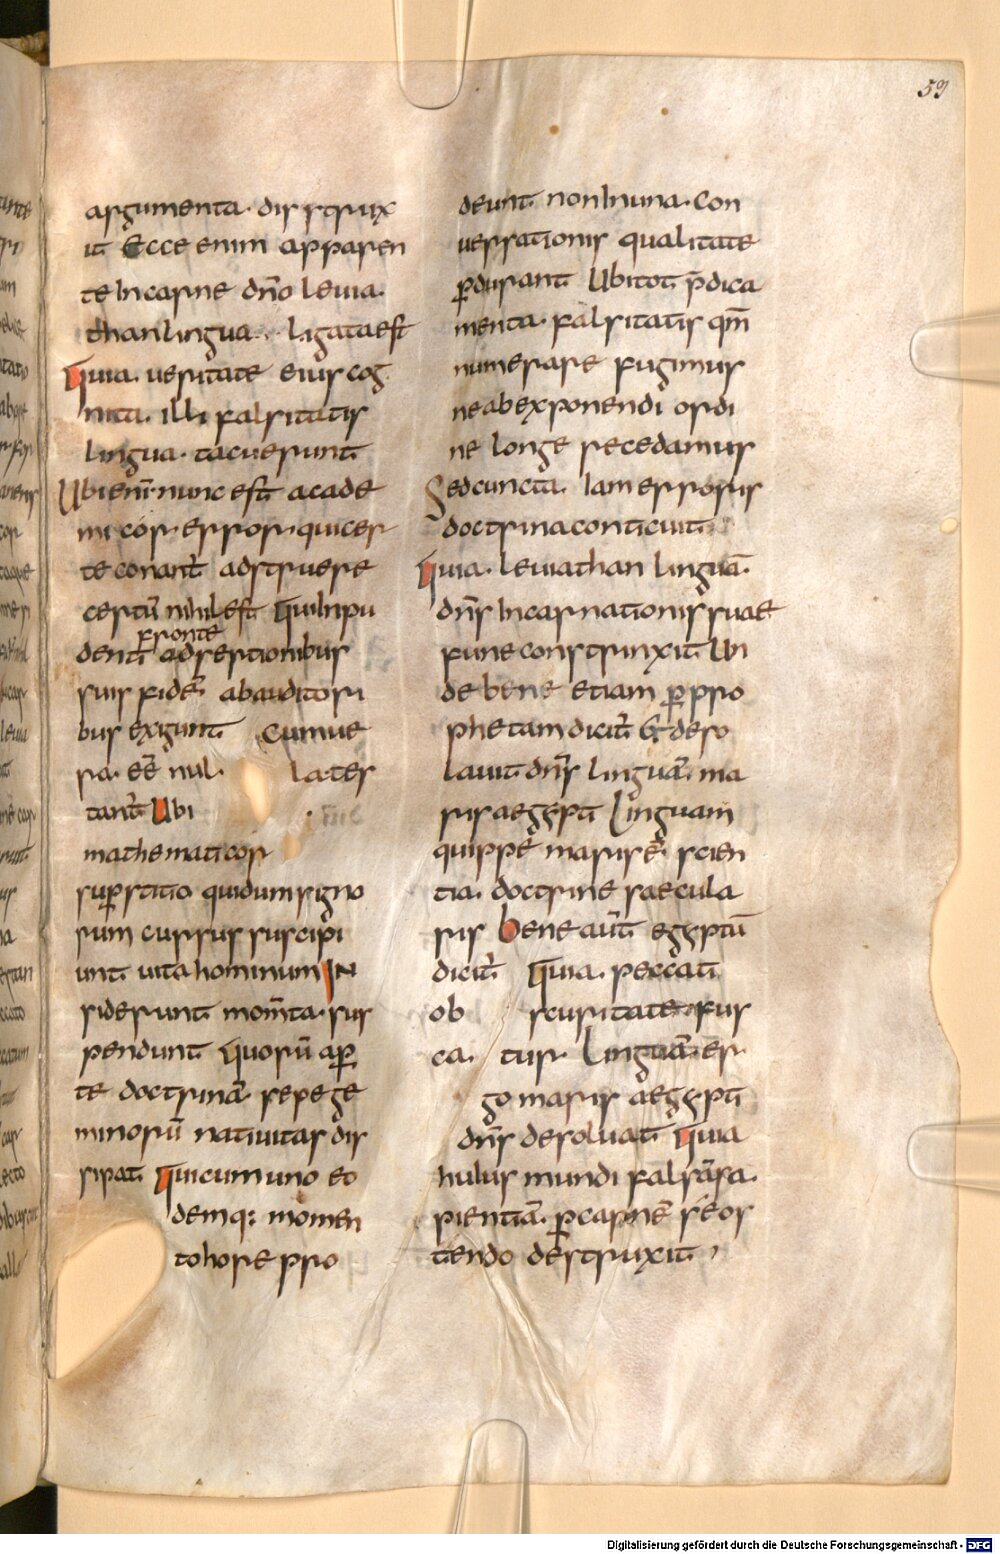 59
argumenta. distrux
it Ecce enim apparen
te Incarne dn̄o leuia.
than lingua. ligata est
Quia. ueritate eius cog
nita. illi falsitatis
lingua. tacuerunt
Ubi eni nunc est acade
micor error. qui cer
te conant adstruere
certū nihil est Qui Inpu
fronte
denti adsertionibus
suis fidē abauditori
bus exigunt cum ue
ra. eē nul la tes
tant Ubi
mathematicor
superstitio qui dum signo
rum cursus suscipi
unt uita hominum IN
siderunt mom̄ta. sus
pendunt Quorū aper
te doctrinā sepe ge
minorū nativitas dis
sipat Qui cum uno eo
demq; momen
to hore pro
deunt non In una. con
uersationis qualitate
p̱durant Ubi tot p̄dica
menta. falsitatis qm̄
numerare fugimus
ne ab exponendi ordi
ne longe recedamus
Sed cuncta. Iam errorus
doctrina conticuit
Quia. leuiathan linguā.
dn̄s Incarnationis suae
fune constrinxit Un
de bene etiam p̱ pro
phetam dicit̄ Et deso
lauit dn̄s linguā. ma
ris aegypti Linguam
quippe maris ē. scien
tia. doctrine saecula
ris Bene aūt egyptū
dicit̄ Quia. peccati
ob scuritate fus
ca. tur. Linguā. er
go maris aegypti
dn̄s desoluati Quia
huius mundi falsā sa.
pientiā. p̱ carnē sé os
tendo destruxit
Digitalisierung gefördert durch die Deutsche Forschungsgemeinschaft - DFG